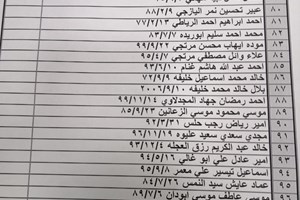 ٨٠ عبير تحسين نمر اليازجي ٨٨/٢/٩
٨١ احمد ابراهيم احمد الرياطي ٧٧/٢/١٣
٨٢ محمد احمد سليم ابوريده ٨٣/٧/٧
٨٣ موده ايهاب محسن مرتجي ٩٩/٩/٢٢
٨٤ علاء وائل مصطفي مرتجي ٩٤/٩/٥
٨٥ احمد عبد الله هاشم غنام ٩٣/٦/١٠
٨٦ خالد محمد اسماعيل خليفه ٧٢/٩/٩
٨٧ بلال خالد محمد خليفه ٢٠٠٦/٩/١٠
٨٨ احمد رمضان جهاد المجدلاوي ٩٩/١١/١٤
٨٩ موسي محمود موسي الزعانين ٨٥/٩/٢٣
٩٠ امير رياض رجب حلس ٩٢/٣/٣١
٩١ مجدي سعدي سعيد عليوه ٩٦/١١/١٩
٩٢ خالد عبد الكريم رزق العجله ٩٣/١٢/٤
٩٣ امير عادل علي ابو غالي ٩٤/٥/١٦
٩٤ اسماعيل تيسير علي معمر ٩٥/٩
٩٥ عماد عايش سيد النمس ٨٤/٧/٢٦
٩٦ موسي عاطف موسي ابودان ٨٩/٧/٦